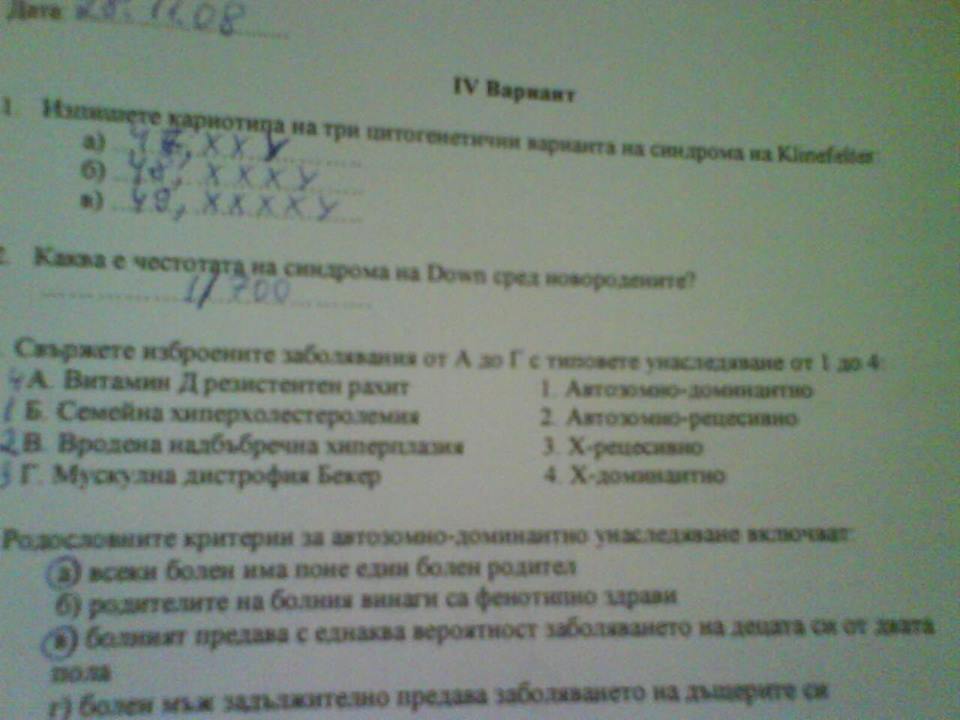 Дата 28.11.08
IV Вариант
1. Изпишете кариотипа на три цитогенетични варианта на синдрома на Klinefelter:
а) 47, XXY
б) 48, XXXY
в) 49, XXXXY
2. Каква е честотата на синдрома на Down сред новородените?
1/700
Свържете изброените заболявания от А до Г с типовете унаследяване от 1 до 4:
4 А. Витамин Д резистентен рахит 1. Автозомно-доминантно
1 Б. Семейна хиперхолестеролемия 2. Автозомно-рецесивно
2 В. Вродена надбъбречна хиперплазия 3. Х-рецесивно
3 Г. Мускулна дистрофия Бекер 4. Х-доминантно
Родословните критерии за автозомно-доминантно унаследяване включват:
а) всеки болен има поне един болен родител
б) родителите на болния винаги са фенотипно здрави
в) болният предава с еднаква вероятност заболяването на децата си от двата
пола
г) болен мъж задължително предава заболяването на дъщерите си